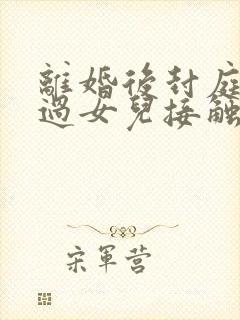 離婚後封庭
過女兒接触
宋軍营